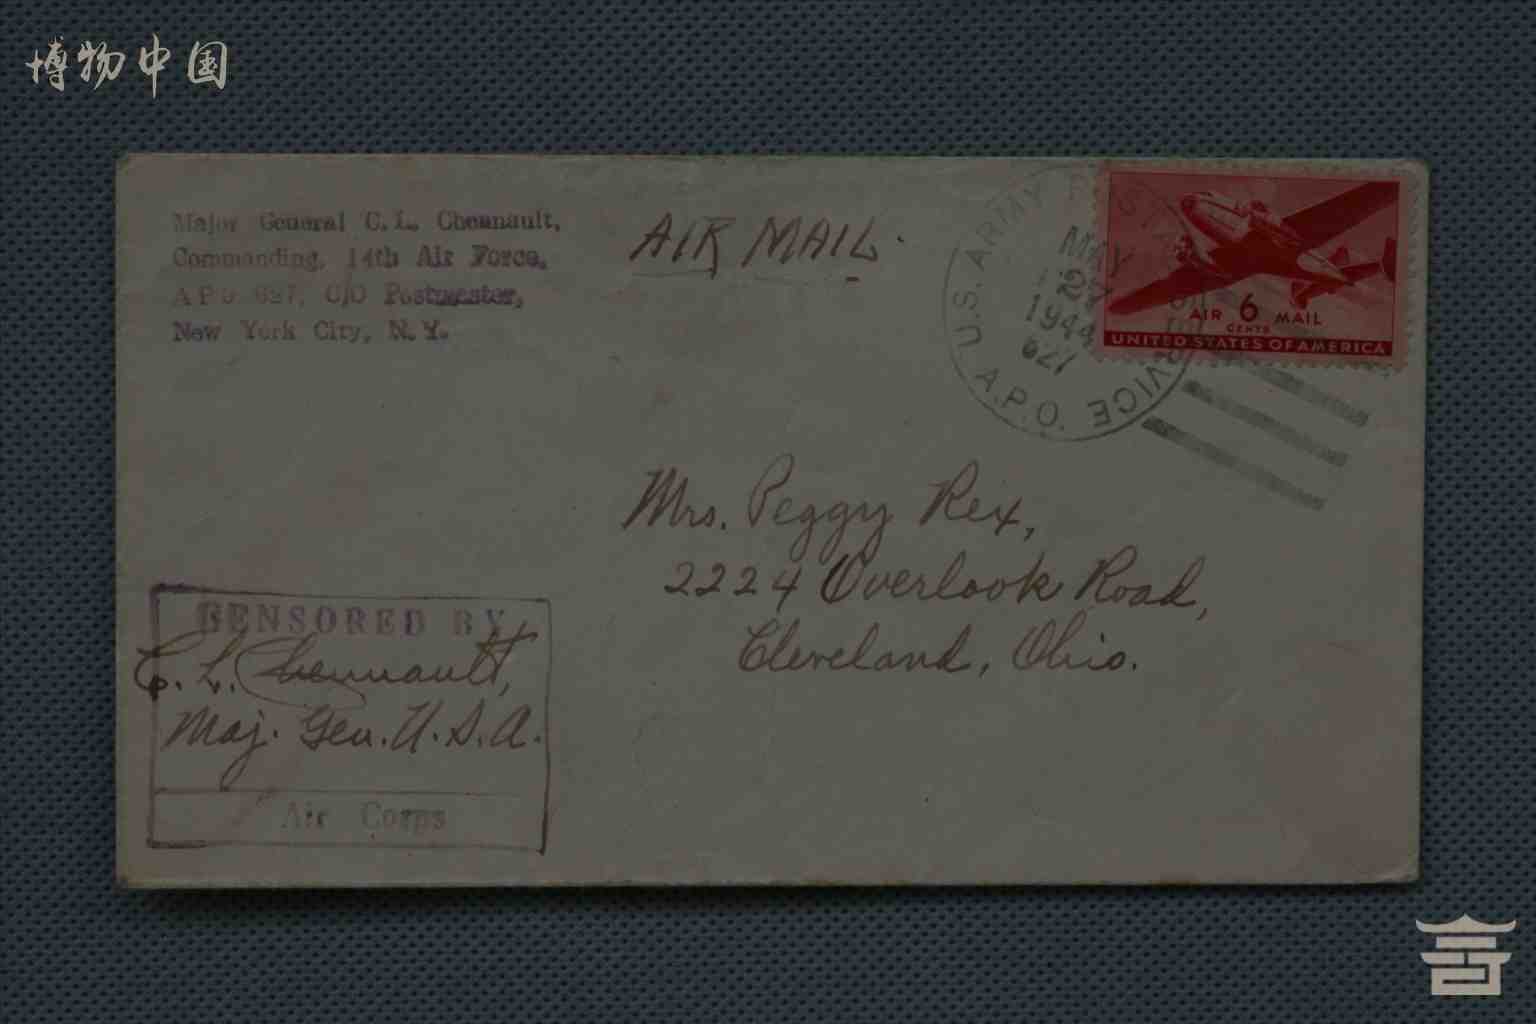 博物中国
Major General C. L. Chennault,
Commanding, 14th Air Force,
APO 627, C/O Postmaster,
New York City, N. Y.
AIR MAIL.
U.S. ARMY POSTAL SERVICE
MAY
1944
627
A.P.O.
AIR 6 MAIL
CENTS
UNITED STATES OF AMERICA
Mrs. Peggy Rex,
2224 Overlook Road,
Cleveland, Ohio.
CENSORED BY
C. L. Chennault,
Maj. Gen. U.S.A.
Air Corps